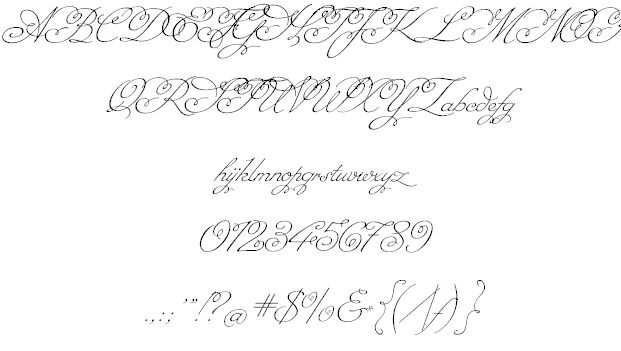 ABCDEFGHIJKLMNOP
QRSTUVWXYZabcdefg
hijklmnopqrstuvwxyz
0123456789
.,:;'"!?@#$%&*{(/\)}